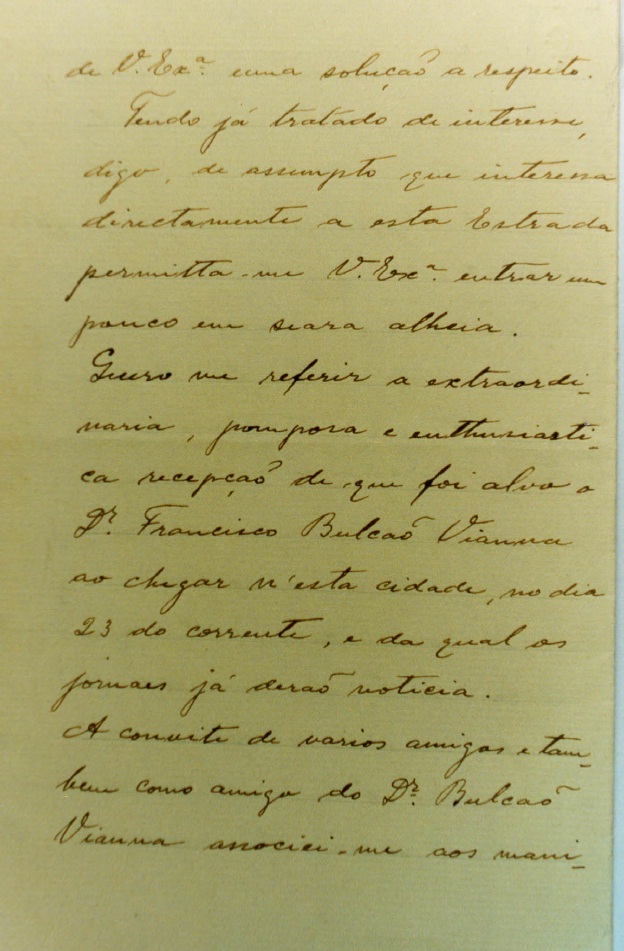 de V. Exª. uma solução a respeito.
Tendo já tratado de interesse,
digo, de assumpto que interessa
directamente a esta Estrada
permitta-me V. Exª. entrar um
pouco em seara alheia.
Quero me referir a extraordi-
naria, pomposa e enthusiasti-
ca recepção de que foi alvo o
Dr. Francisco Bulcaõ Vianna
ao chegar n'esta cidade, no dia
23 do corrente, e da qual os
jornaes já deraõ noticia.
A convite de varios amigos e tam-
bem como amigo do Dr. Bulcaõ
Vianna associei-me aos mani-